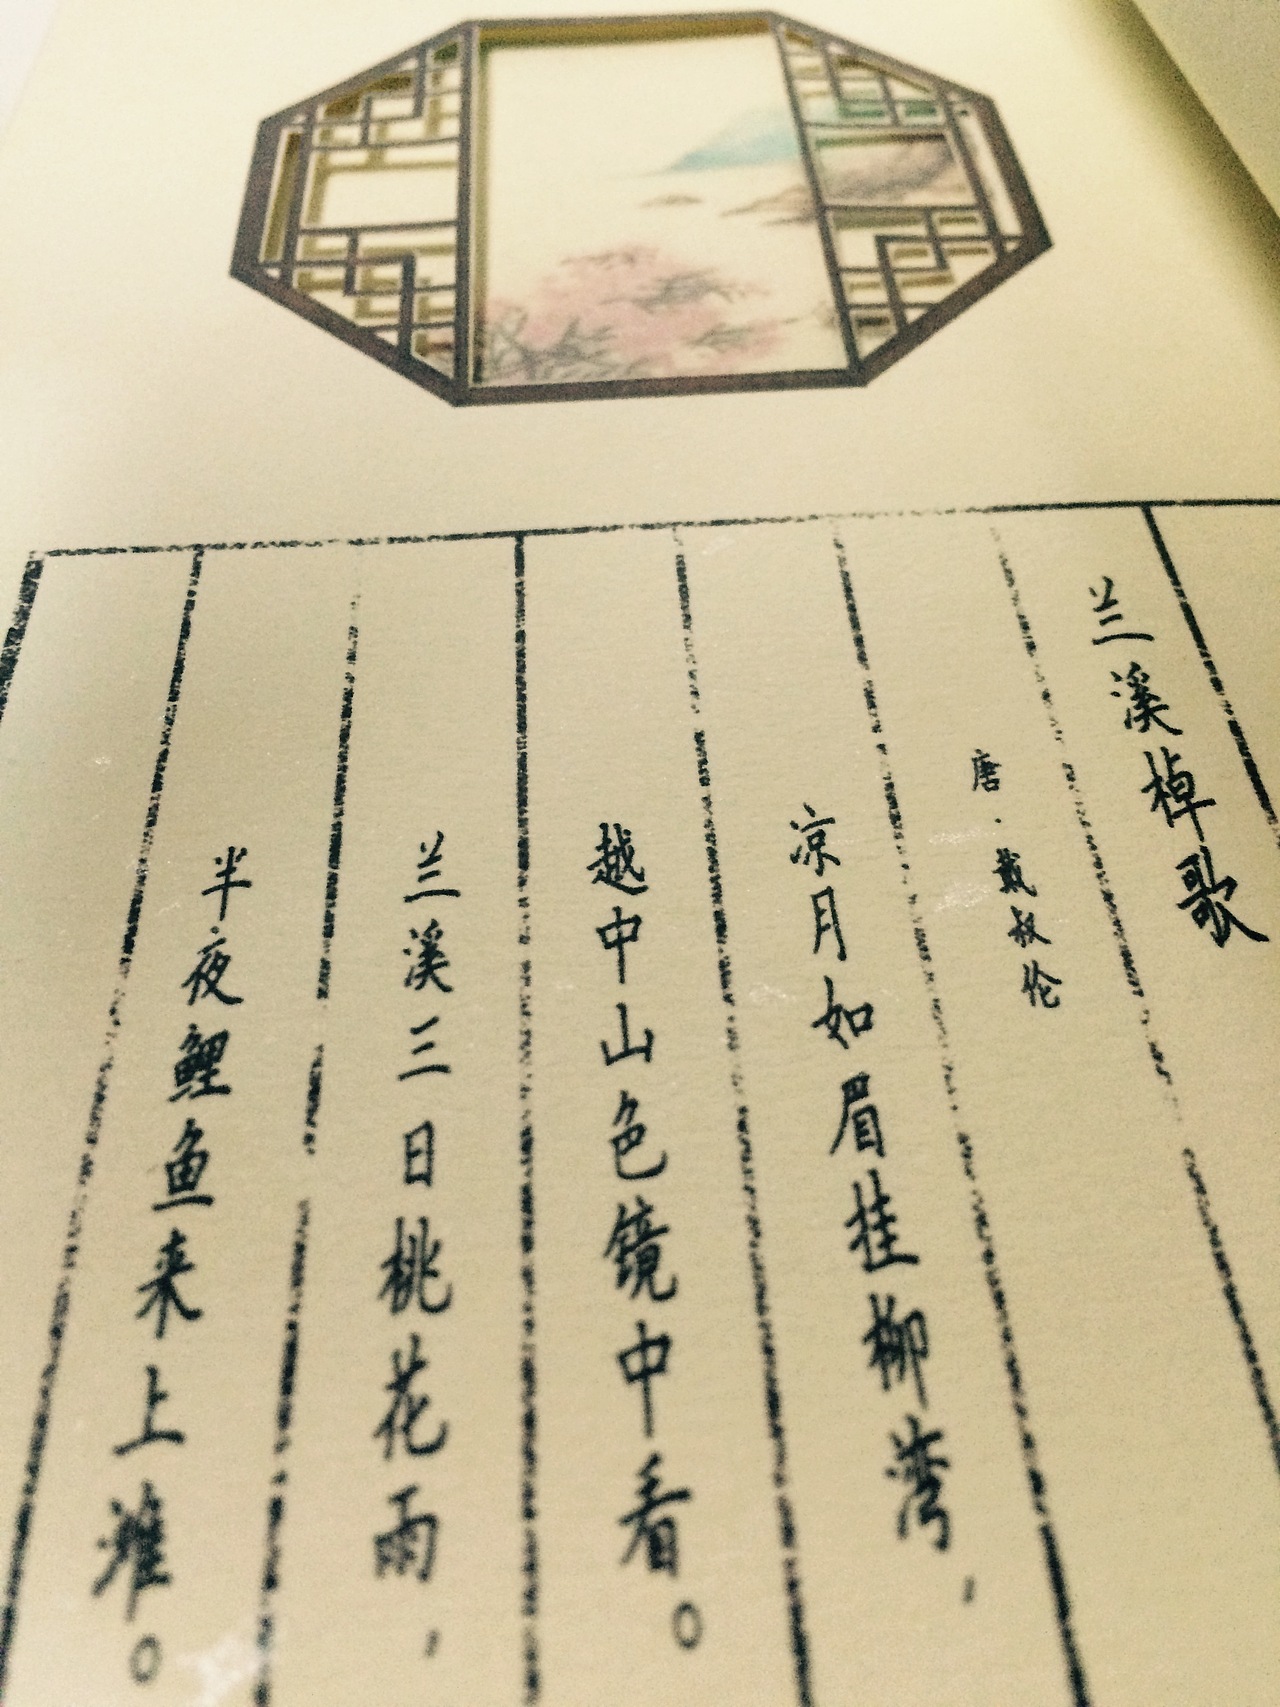 兰溪棹歌
唐·戴叔伦
凉月如眉挂柳湾，
越中山色镜中看。
兰溪三日桃花雨，
半夜鲤鱼来上滩。